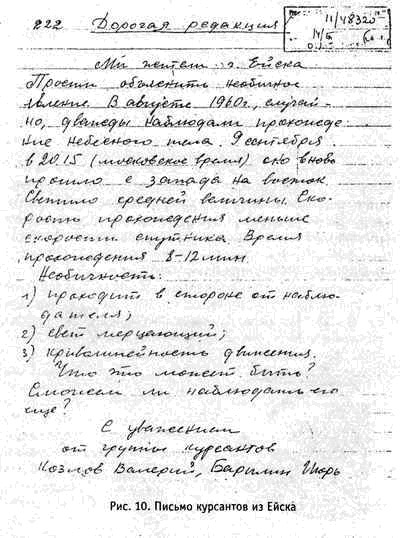 222 Дорогая редакция
11/48320
Мы жители г. Ейска
Просим объяснить необычное
явление. В августе 1960г., случай-
но, дважды наблюдали прохожде-
ние небесного тела. 9 сентября
в 20.15 (московское время) оно вновь
прошло с запада на восток.
Светило средней величины. Ско-
рость прохождения меньше
скорости спутника. Время
прохождения 8-12 мин.
Необычность:
1) проходит в стороне от наблю-
дателя;
2) свет мерцающий;
3) криволинейность движения.
Что это может быть?
Сможем ли наблюдать его
еще?
С уважением
от группы курсантов
Козлов Валерий, Игорь
Рис. 10. Письмо курсантов из Ейска